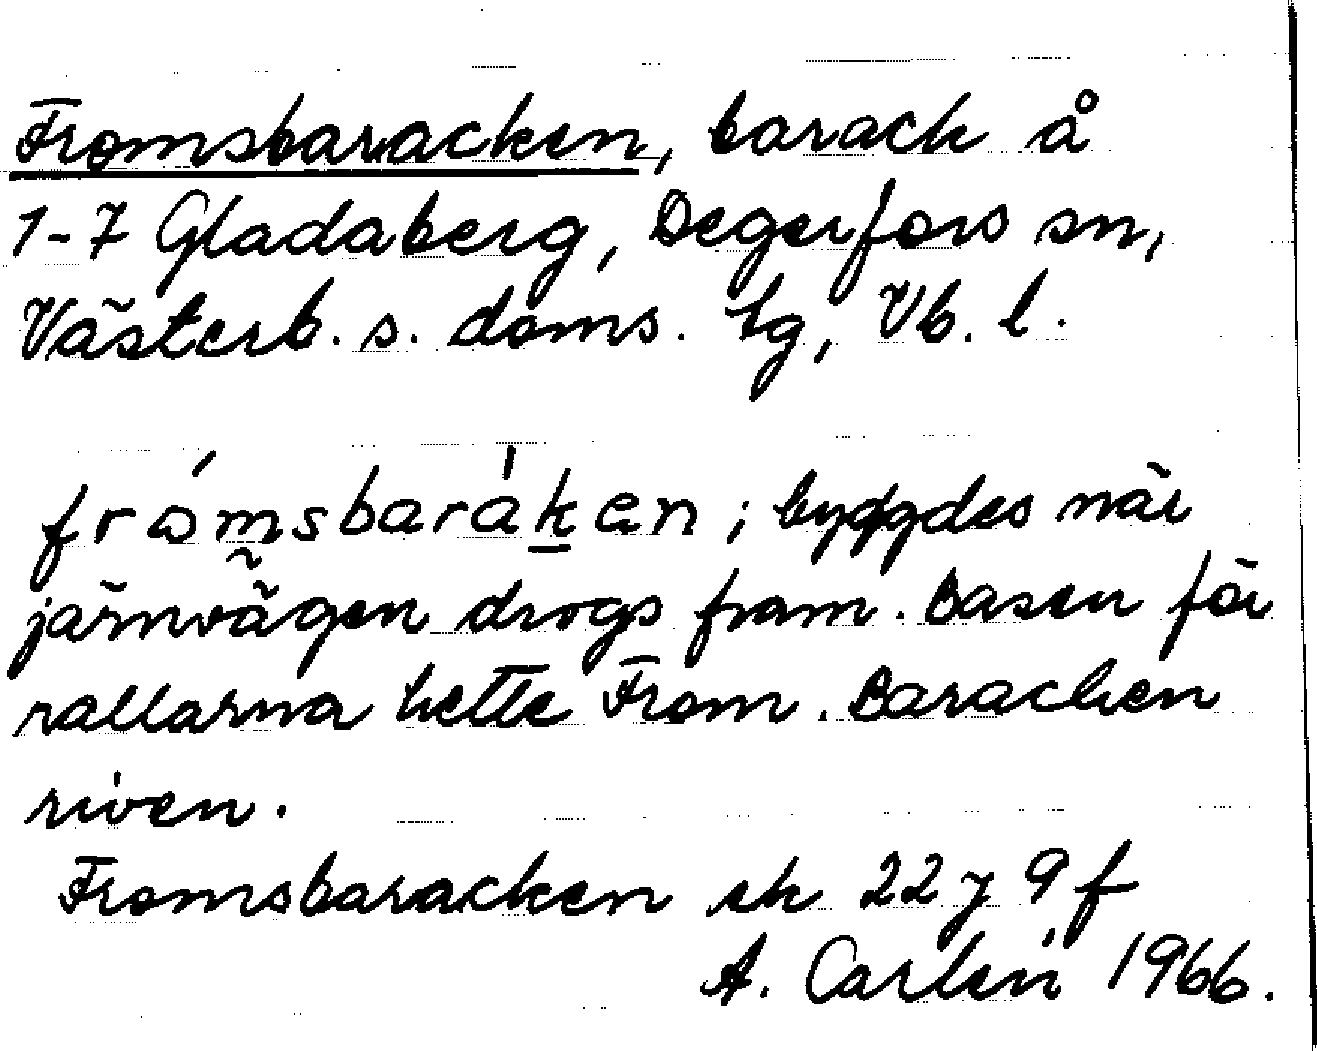 Fromsbaracken, barack å
1-7 Gladaberg, Degerfors sn,
Västerb. s. doms. tg, Vb. l.
frómsbarák̲en; byggdes när
järnvägen drogs fram. Basen för
rallarna hette From. Baracken
riven.
Fromsbaracken ek 22 J 9 f
A. Carlén 1966.